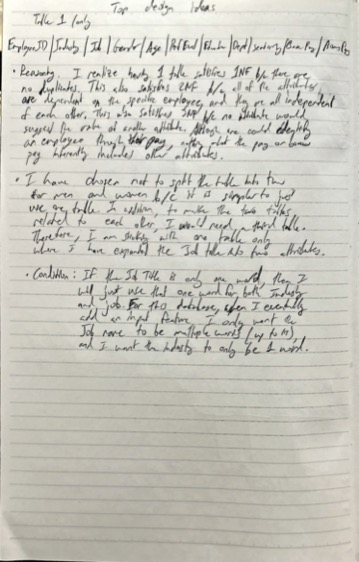 Top design ideas
Table 1 (only
EmployeeID / Industry / Job / Gender / Age / Perf Eval / Education / Dept / seniority / Base Pay / Bonus Pay
• Reasoning: I realize having 1 table satisfies 1NF b/c there are
no duplicates. This also satisfies 2NF b/c all of the attributes
are dependent on the specific employee, and they are all independent
of each other. This also satisfies 3NF b/c no attribute would
suggest the value of another attribute. Although we could identify
an employee through their pay, what the pay or bonus
pay inherently includes other attributes.
• I have chosen not to split the table into two
for men and women b/c it is simpler to just
use one table. In addition, to make the two tables
related to each other, I would need a third table.
Therefore, I am sticking with one table only
where I have expanded the Job title into two attributes.
• Condition: If the Job Title is only one word, then I
will just use that one word for both Industry
and job. For this database, when I eventually
add an input feature, I only want the
Job name to be multiple words (up to
and I want the industry to only be 1 word.